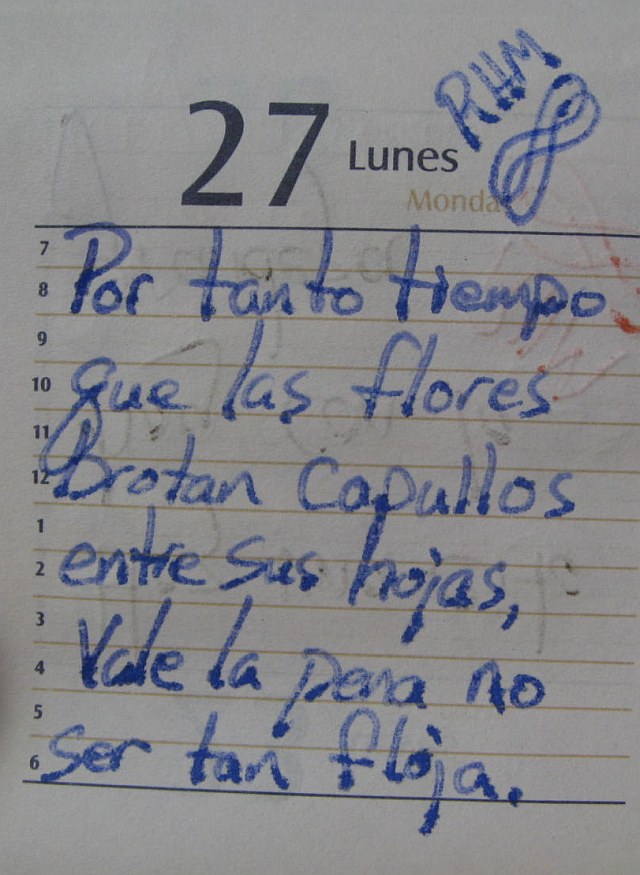 RHM
27 Lunes
Monda
7
Por tanto tiempo
8
9
que las flores
10
11
brotan capullos
12
1
entre sus hojas,
2
3
Vale la pena no
4
5
ser tan floja.
6